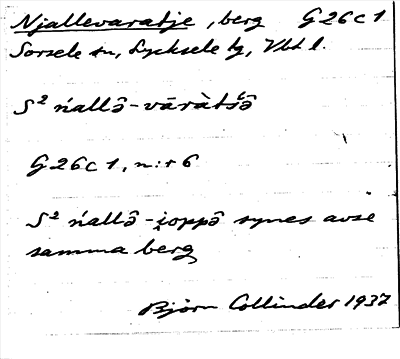 Njallevaratje, berg G26c1
Sorsele sn, Lycksele tg, Vbt l.
S² ńallə̂-vāràtśə̂
G26c1, n:r 6
S² ńallə̂-i̯oppə̂ synes avse
samma berg
Björn Collinder 1937